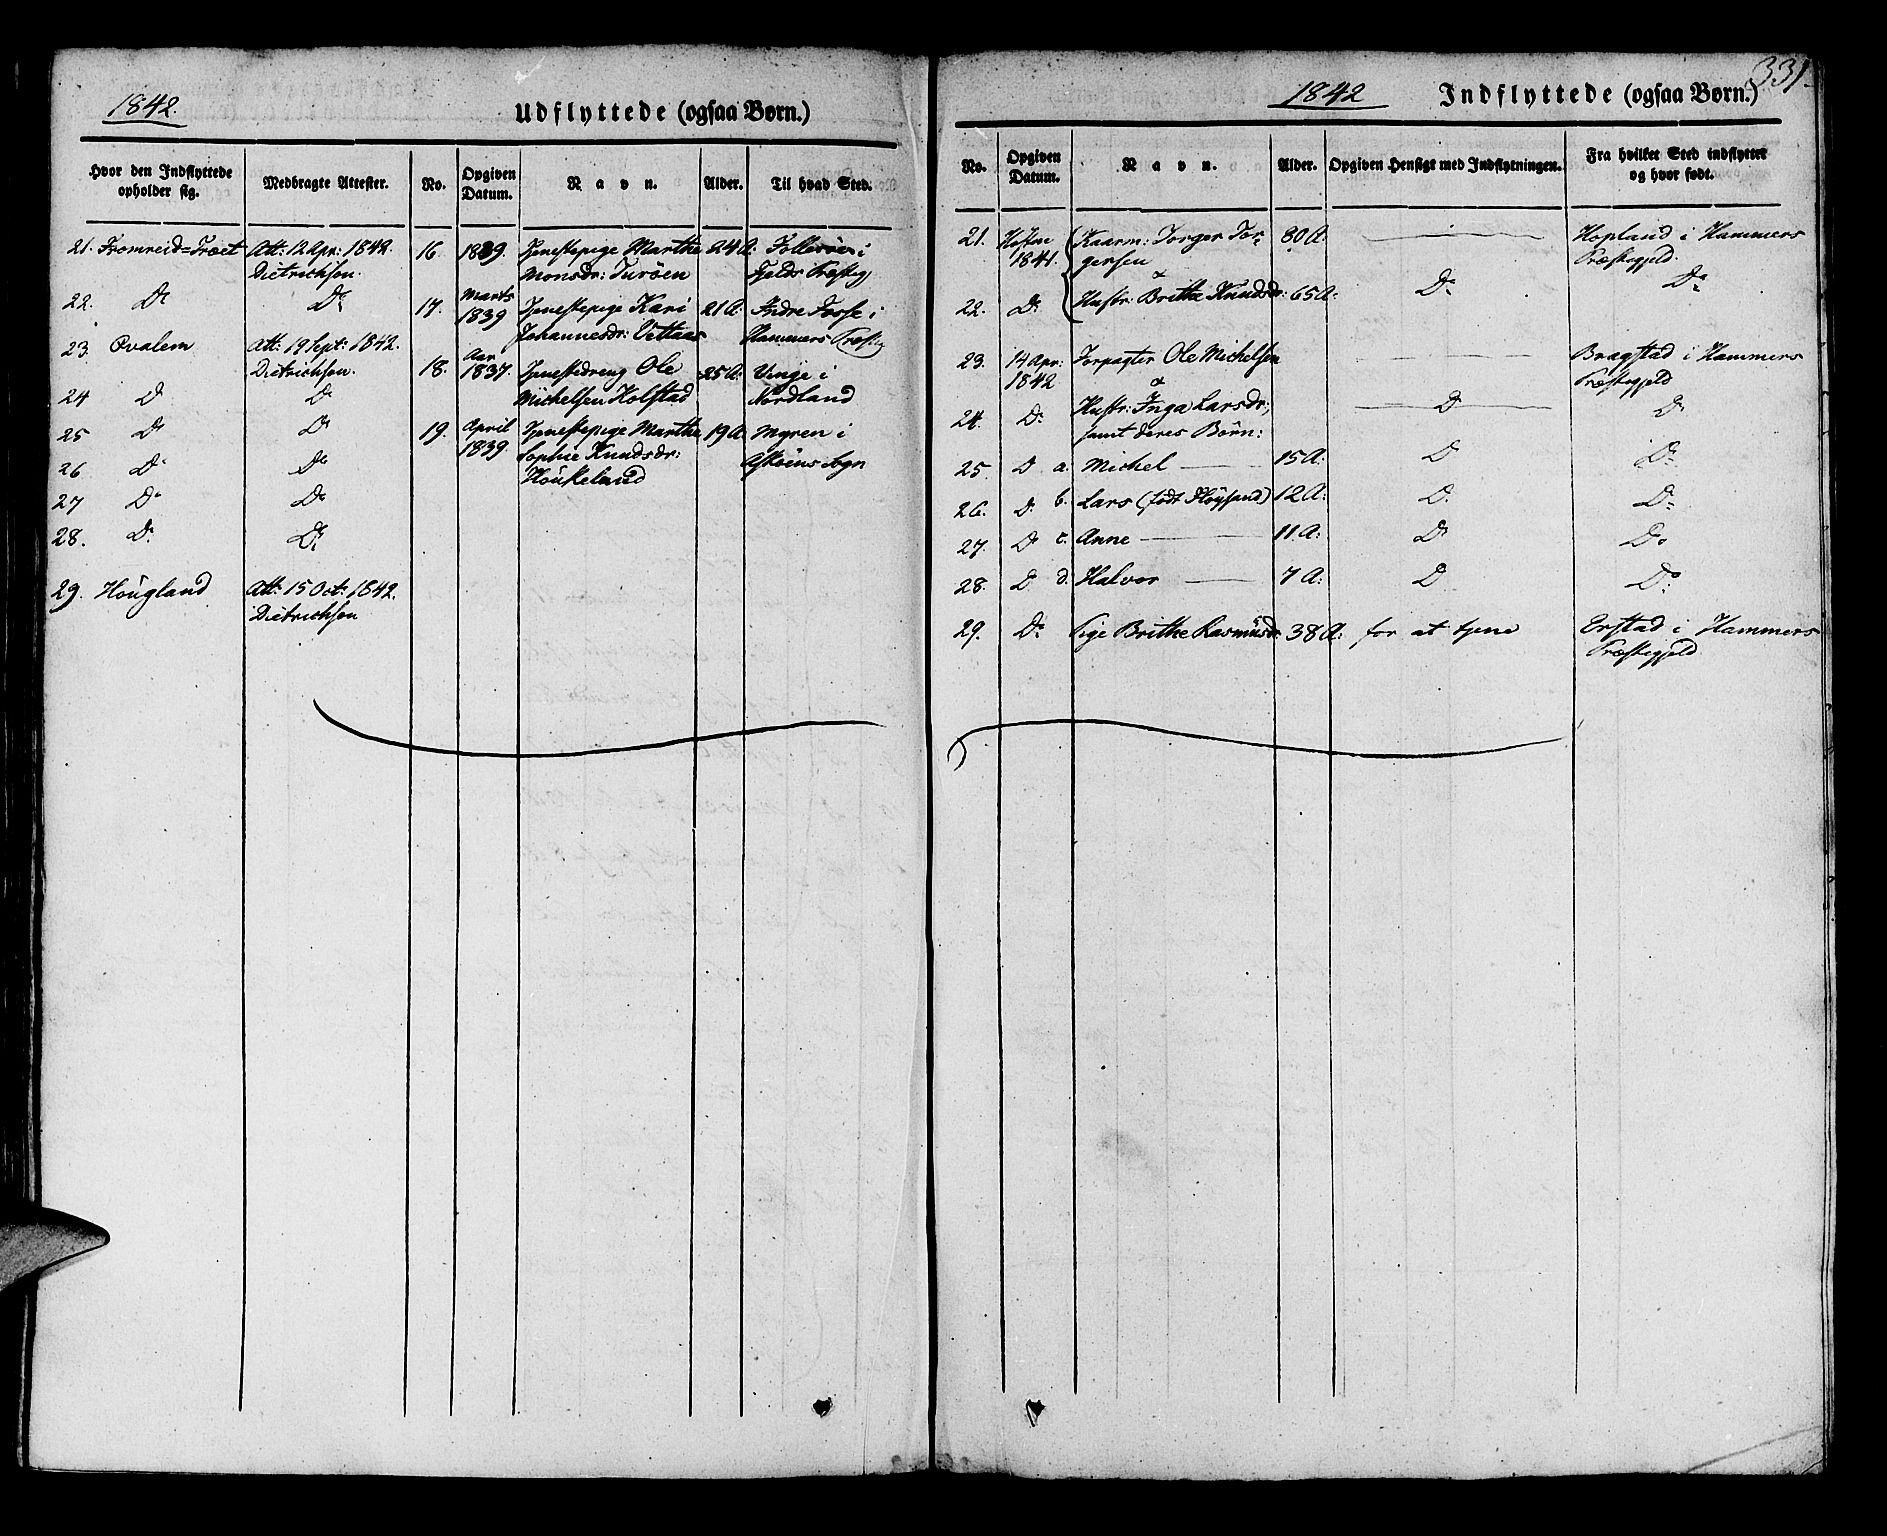 1842.
Udflyttede (ogsaa Børn.)
Hvor den Indflyttede opholder sig.
Medbragte Attester.
No.
Opgiven Datum.
Navn.
Alder.
Til hvad Sted.
21. Fromreid=Træet Att: 12 Apr: 1842.
Dietrichson.
22. Do Do
23. Qvalem Att: 19 Sept: 1842.
Dietrichson.
24 D D
25 Do Do
26 Do Do
27 Do Do
28. Do Do
29. Hougland Att: 15 Oct: 1842.
Dietrichson
16 1839. Tjenestepige Marthe 24 A: i
Monsdr: Turöen Fjelds Præstegj
17. Marts
1839 Tjenestepige Kari 21 A: Indre Fosse i
Johannesdr: Vettaas Hammers Præstg
18. Aar
1837. Tjenestedreng Ole 25 A: Vinge i
Michelsen Kolstad Nordland
19. April
1839. Tjenestepige Marthe 19 A: Myren i
Sophie Knudsdr: Askøens Sogn
Houkeland
331.
1842
Indflyttede (ogsaa Børn.)
No.
Opgiven Datum.
Navn.
Alder.
Opgiven Hensigt med Indflytningen.
Fra hvilket Sted indflyttet og hvor født.
21. Høsten
1841. Kaarm: Torger Tor-
gersen 80 A: Hopland i Hammers
Præstegjeld.
&
22. Do Hustr: Brithe Knudsdr: 65 A: Do Do
23. 14 Apr:
1842 Forpagter Ole Michelsen Bragstad i Hammers
Præstegjeld
&
24. Do Hustr: Inga Larsdr; D Do
samt deres Børn:
25. D a. Michel 15 A: D Do
26. D. b. Lars (født Fløysand) 12 A: D. Do
27. Do c. Anne 11 A: Do Do
28. D d. Halvor 7 A: D Do
29. Do Pige Brithe Rasmusdr 38 A: for at tjene Erstad i Hammers
Præstegjeld